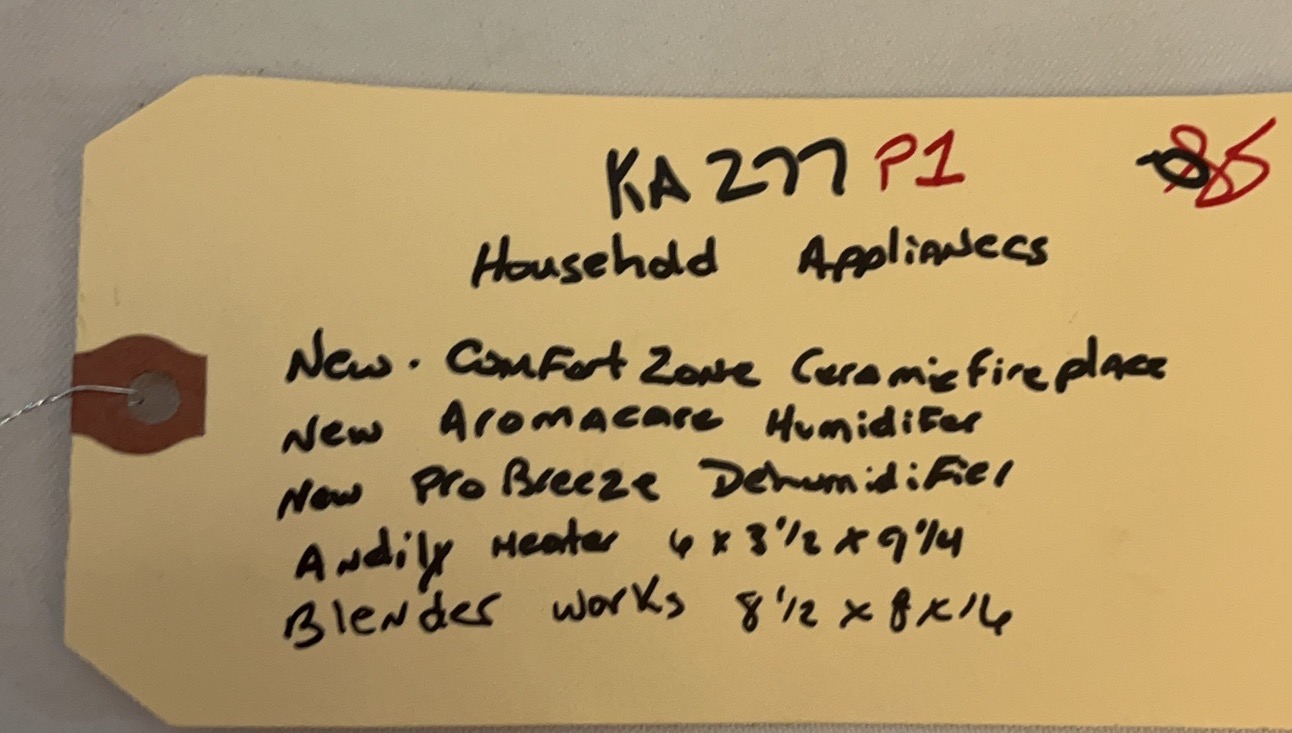 KA277 P1
Household Appliances
New. Comfort Zone Ceramic fireplace
New Aromacare Humidifer
New Pro Breeze Dehumidifier
Andily Heater 6 x 8 1/2 x 9 1/4
Blender works 8 1/2 x 8 x 16